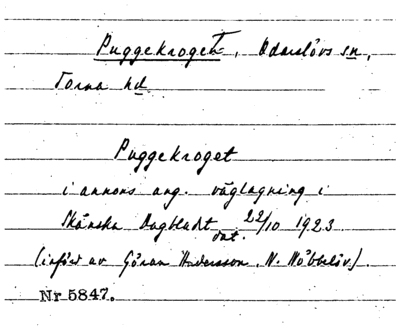 Puggekroget, Odarslövs sn,
Torna hd
Puggekroget
i annons ang. väglagning i
Skånska Dagbladet dat. 22/10 1923
(införd av Göran Andersson, N. Nöbbelöv).
Nr 5847.